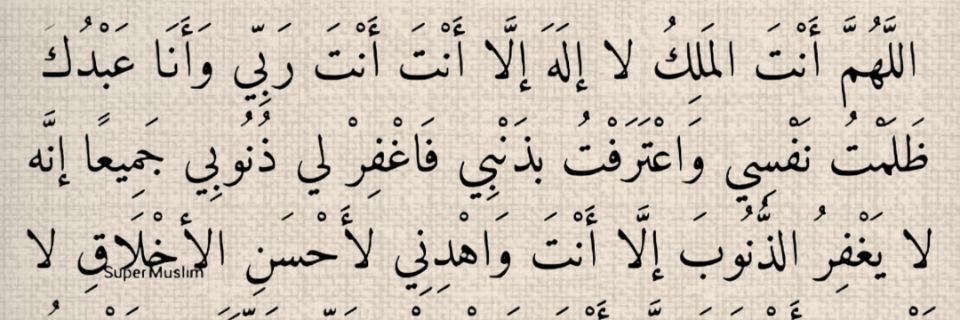 اللَّهُمَّ أَنْتَ المَلِكُ لا إلَهَ إلَّا أَنْتَ أَنْتَ رَبِّي وَأَنَا عَبْدُكَ
ظَلَمْتُ نَفْسِي وَاعْتَرَفْتُ بذَنْبِي فَاغْفِرْ لي ذُنُوبِي جَمِيعًا إنَّه
لا يَغْفِرُ الذُّنُوبَ إلَّا أَنْتَ وَاهْدِنِي لأَحْسَنِ الأخْلَاقِ لا
Super Muslim